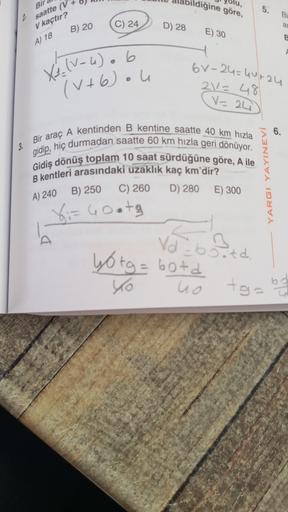 2.
saatte (V +
alabildiğine göre,
V kaçtır?
A) 18 B) 20 C) 24 D) 28 E) 30
(V-4) . 6
(V+6) . 4
6V-24=4V+24
2V= 48
V= 24
3. Bir araç A kentinden B kentine saatte 40 km hızla
gidip, hiç durmadan saatte 60 km hızla geri dönüyor.
Gidiş dönüş toplam 10 saat sürdüğüne göre, A ile
B kentleri arasındaki uzaklık kaç km'dir?
A) 240 B) 250 C) 260 D) 280 E) 300
= 40.tg
A
B
Vd = 60.td
40tg = 60td
40 40
tg =
5.
6.
YARGI YAYINEVİ